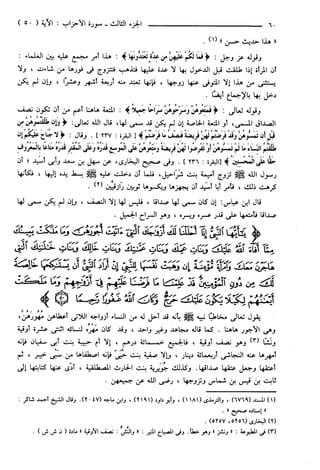 ٦٠ الجزء الثالث - سورة الأحزاب : الآية ( ٥٠ )
« هذا حديث حسن » (١) .
وقوله عز وجل : ﴿ فما لكم عليهن من عدة تعتدونها ﴾ : هذا أمر مجمع عليه بين العلماء :
أن المرأة إذا طلقت قبل الدخول بها لا عدة عليها فتذهب فتتزوج في فورها من شاءت ، ولا
يستثنى من هذا إلا المتوفى عنها زوجها ، فإنها تعتد منه أربعة أشهر وعشرا ، وإن لم يكن
دخل بها بالإجماع أيضا .
وقوله تعالى : ﴿ فمتعوهن وسرحوهن سراحا جميلا ﴾ : المتعة هاهنا أعم من أن تكون نصف
الصداق المسمى ، أو المتعة الخاصة إن لم يكن قد سمى لها، قال الله تعالى: ﴿ وإن طلقتموهن من
قبل أن تمسوهن وقد فرضتم لهن فريضة فنصف ما فرضتم ﴾ [ البقرة : ٢٣٧ ] . وقال : ﴿ لا جناح عليكم إن
طلقتم النساء ما لم تمسوهن أو تفرضوا لهن فريضة ومتعوهن على الموسع قدره وعلى المقتر قدره متاعا بالمعروف
حقا على المحسنين ﴾ [ البقرة : ٢٣٦ ] . وفي صحيح البخاري، عن سهل بن سعد وأبي أسيد ؛ أن
رسول الله ﷺ تزوج أميمة بنت شراحيل، فلما أن دخلت عليه ﷺ بسط يده إليها ، فكأنها
كرهت ذلك ، فأمر أبا أسيد أن يجهزها ويكسوها ثوبين رازقيين (٢) .
قال ابن عباس: إن كان سمى لها صداقا ، فليس لها إلا النصف ، وإن لم يكن سمى لها
صداقا فأمتعها على قدر عسره ويسره ، وهو السراح الجميل .
﴿ يا أيها النبي إنا أحللنا لك أزواجك اللاتي آتيت أجورهن وما ملكت يمينك
مما أفاء الله عليك وبنات عمك وبنات عماتك وبنات خالك وبنات خالاتك اللاتي
هاجرن معك وامرأة مؤمنة إن وهبت نفسها للنبي إن أراد النبي أن يستنكحها خالصة
لك من دون المؤمنين قد علمنا ما فرضنا عليهم في أزواجهم وما ملكت أيمانهم
لكيلا يكون عليك حرج وكان الله غفورا رحيما ﴾
يقول تعالى مخاطبا نبيه ﷺ بأنه قد أحل له من النساء أزواجه اللاتي أعطاهن مهورهن ،
وهي الأجور هاهنا . كما قاله مجاهد وغير واحد ، وقد كان مهره لنسائه اثنتي عشرة أوقية
ونشا (٣) وهو نصف أوقية ، فالجميع خمسمائة درهم ، إلا أم حبيبة بنت أبي سفيان فإنه
أمهرها عنه النجاشي أربعمائة دينار ، وإلا صفية بنت حيي فإنه اصطفاها من سبي خيبر ، ثم
أعتقها وجعل عتقها صداقها. وكذلك جويرية بنت الحارث المصطلقية ، أدى عنها كتابتها إلى
ثابت بن قيس بن شماس وتزوجها ، رضي الله عن جميعهن .
(١) المسند (٦٧٦٩) ، والترمذي (١١٨١) ، وأبو داود (٢١٩١) ، وابن ماجه (٢٠٤٧) . وقال الشيخ أحمد شاكر :
« إسناده صحيح » .
(٢) البخاري (٥٢٥٦، ٥٢٥٧) .
(٣) في المطبوعة : « ونشز » وهو خطأ. وفي المصباح المنير : « والنش : نصف الأوقية » مادة ( ن ش ش ) .